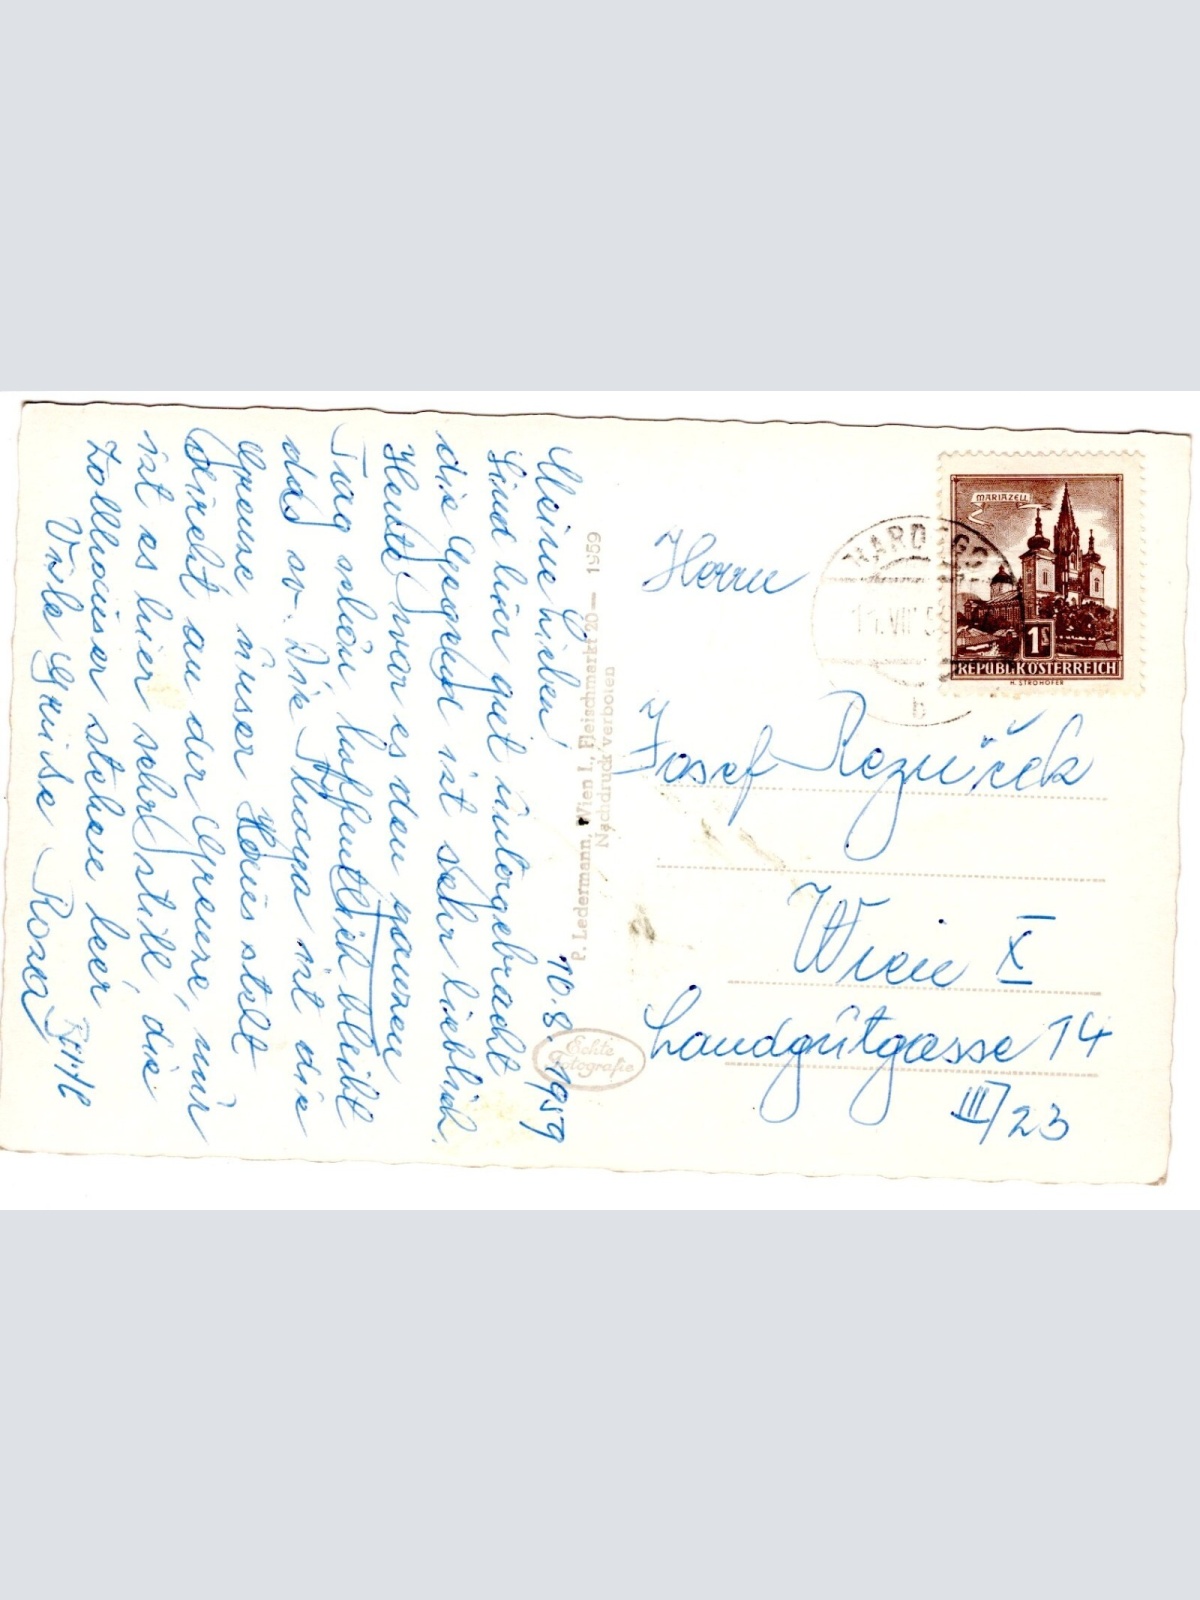 10. 8. 1959
Meine Lieben!
Sind hier gut untergebracht
die Gegend ist sehr lieblich.
Heute war es den ganzen
Tag schön hoffentlich bleibt
das so. Die Thaya ist die
Grenze unser Haus steht
direkt an der Grenze, nur
ist es hier sehr still, die
Zollhäuser stehen leer
Viele Grüsse Rosa
P. Ledermann, Wien I., Fleischmarkt 20 — 1959
Nachdruck verboten
Echte
Fotografie
MARIAZELL
1S
REPUBLIK ÖSTERREICH
H. STROHOFER
HARDEGG
11.VIII.59
b
Herrn
Josef Rezniček
Wien X
Landgutgasse 14
III/23